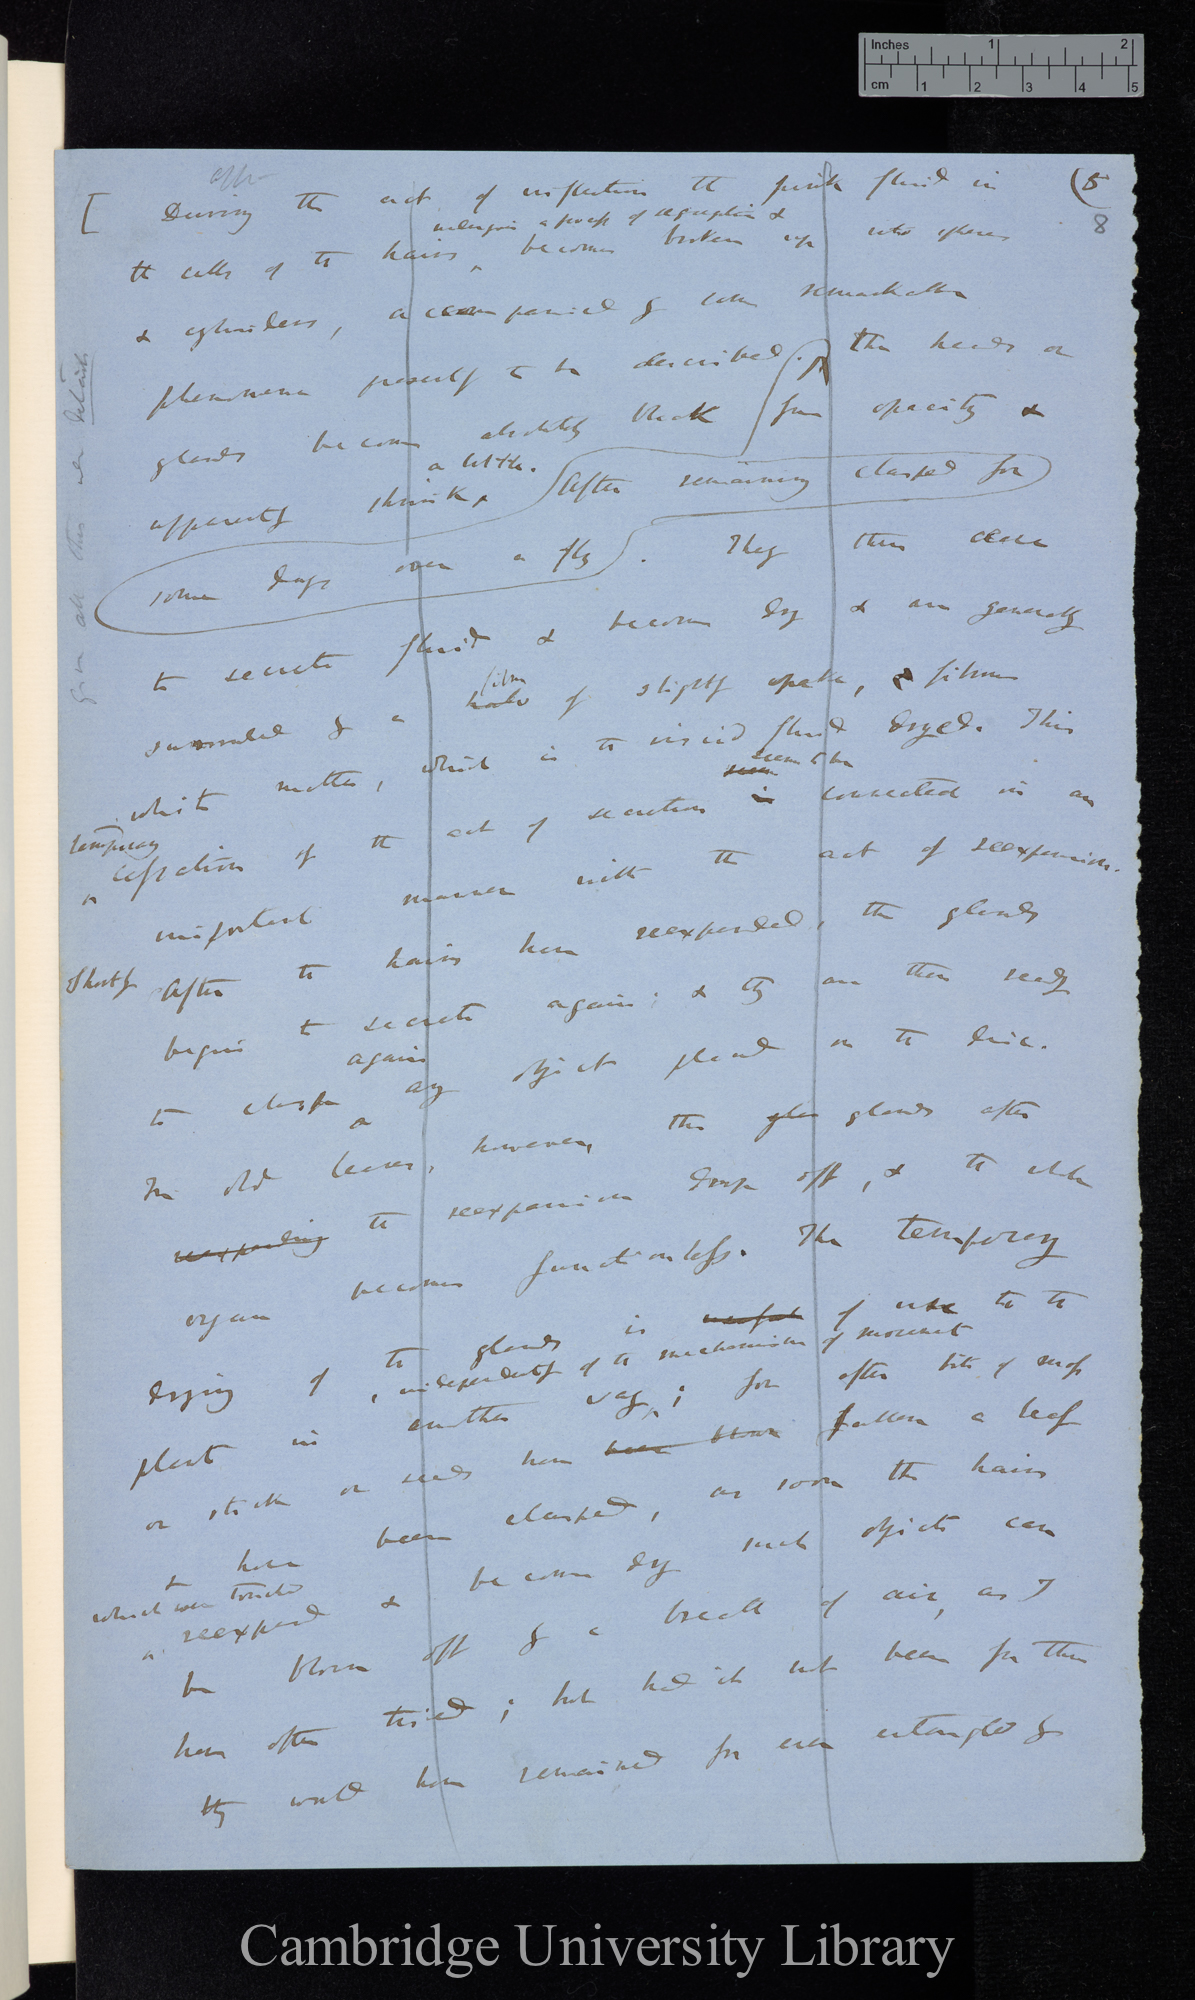 Inches 1 2
cm 1 2 3 4 5
(5
8
[ During the act of inflection the pink fluid in
undergoes a process of segregation &
the cells of the hairs, becomes broken up into spheres
& cylinders, accompanied by some remarkable
phenomena presently to be described. The heads or
glands become absolutely black from opacity &
a little.
apparently shrink. After remaining clasped for
some days over a fly. They then cease
to secrete fluid & become dry & are generally
film
surrounded by a halo of slightly opake, filmy
white matter, which is the viscid fluid dryed. This
seem to be
temporary
cessation of the act of secretion is connected in an
important manner with the act of reexpansion.
Shortly After the hairs have reexpanded, the glands
begin to secrete again; & they are then ready
again
to clasp any object placed on the disc.
In old leaves, however, the glands after
reexpanding the reexpansion drop off, & the whole
organ becomes functionless. The temporary
drying of the glands is useful of use to the
, independently of the mechanism of movement
plant in another way; for often bits of moss
or stick or seeds have been blown fallen a leaf
& have been clasped, as soon the hairs
which were touched
reexpand & become dry such objects can
be blown off by a breath of air, as I
have often tried; but had it not been for this
they would have remained for ever entangled by
Cambridge University Library